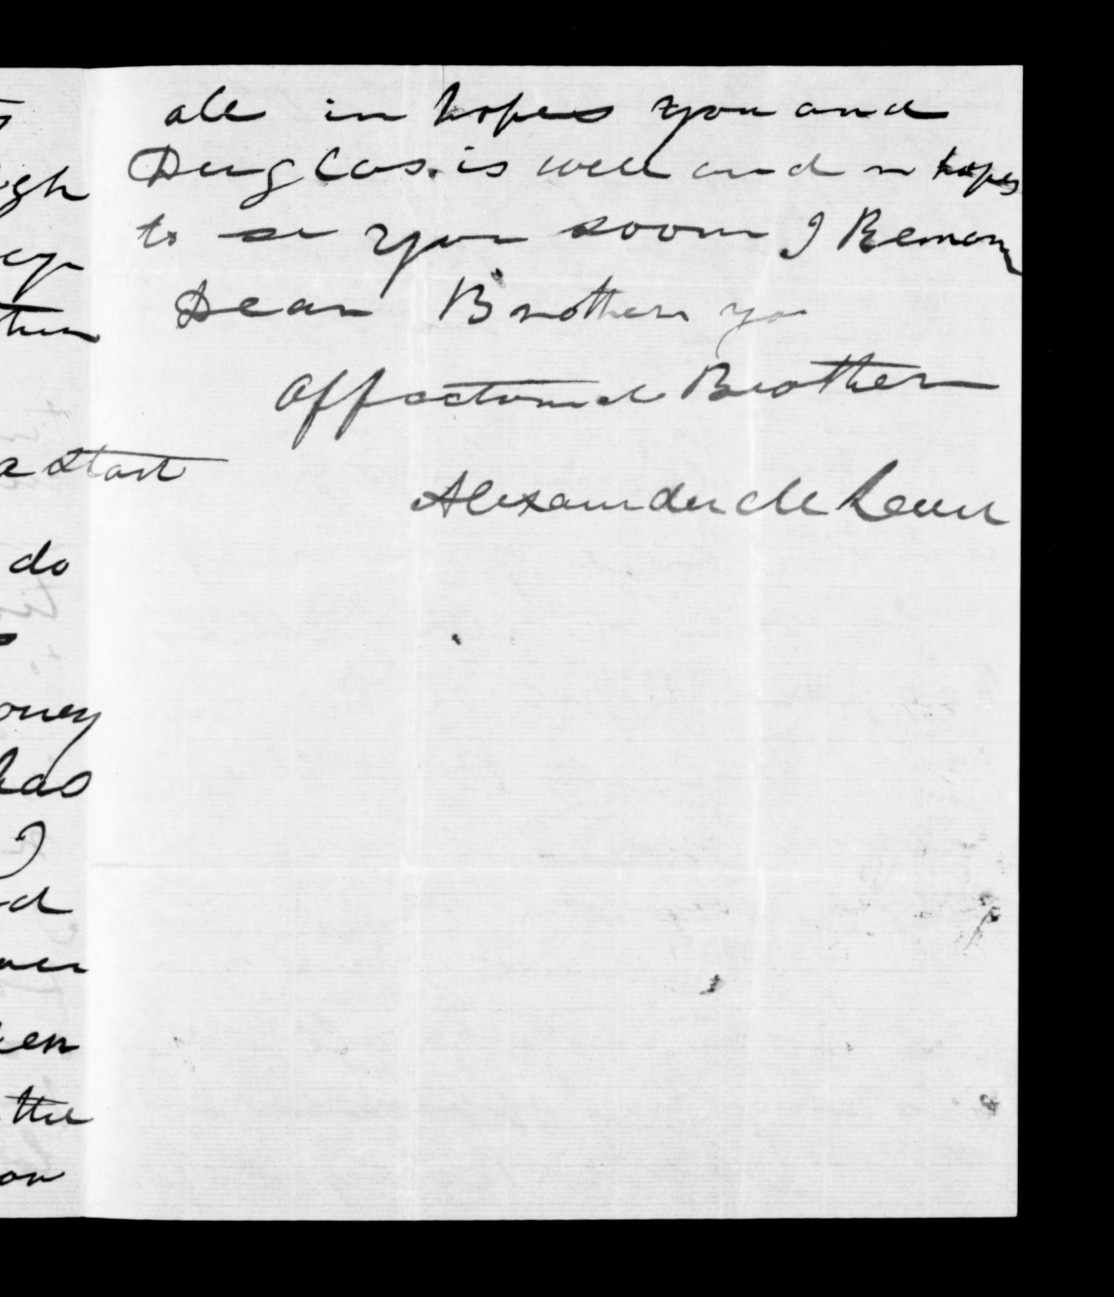 all in hopes you and
Duglas. is well and in hopes
to se you soon I Reman
Dear Brother yo
affectund Brother
Alexander Mc Lean
igh
a start
do
oney
has
I
ver
ken
the